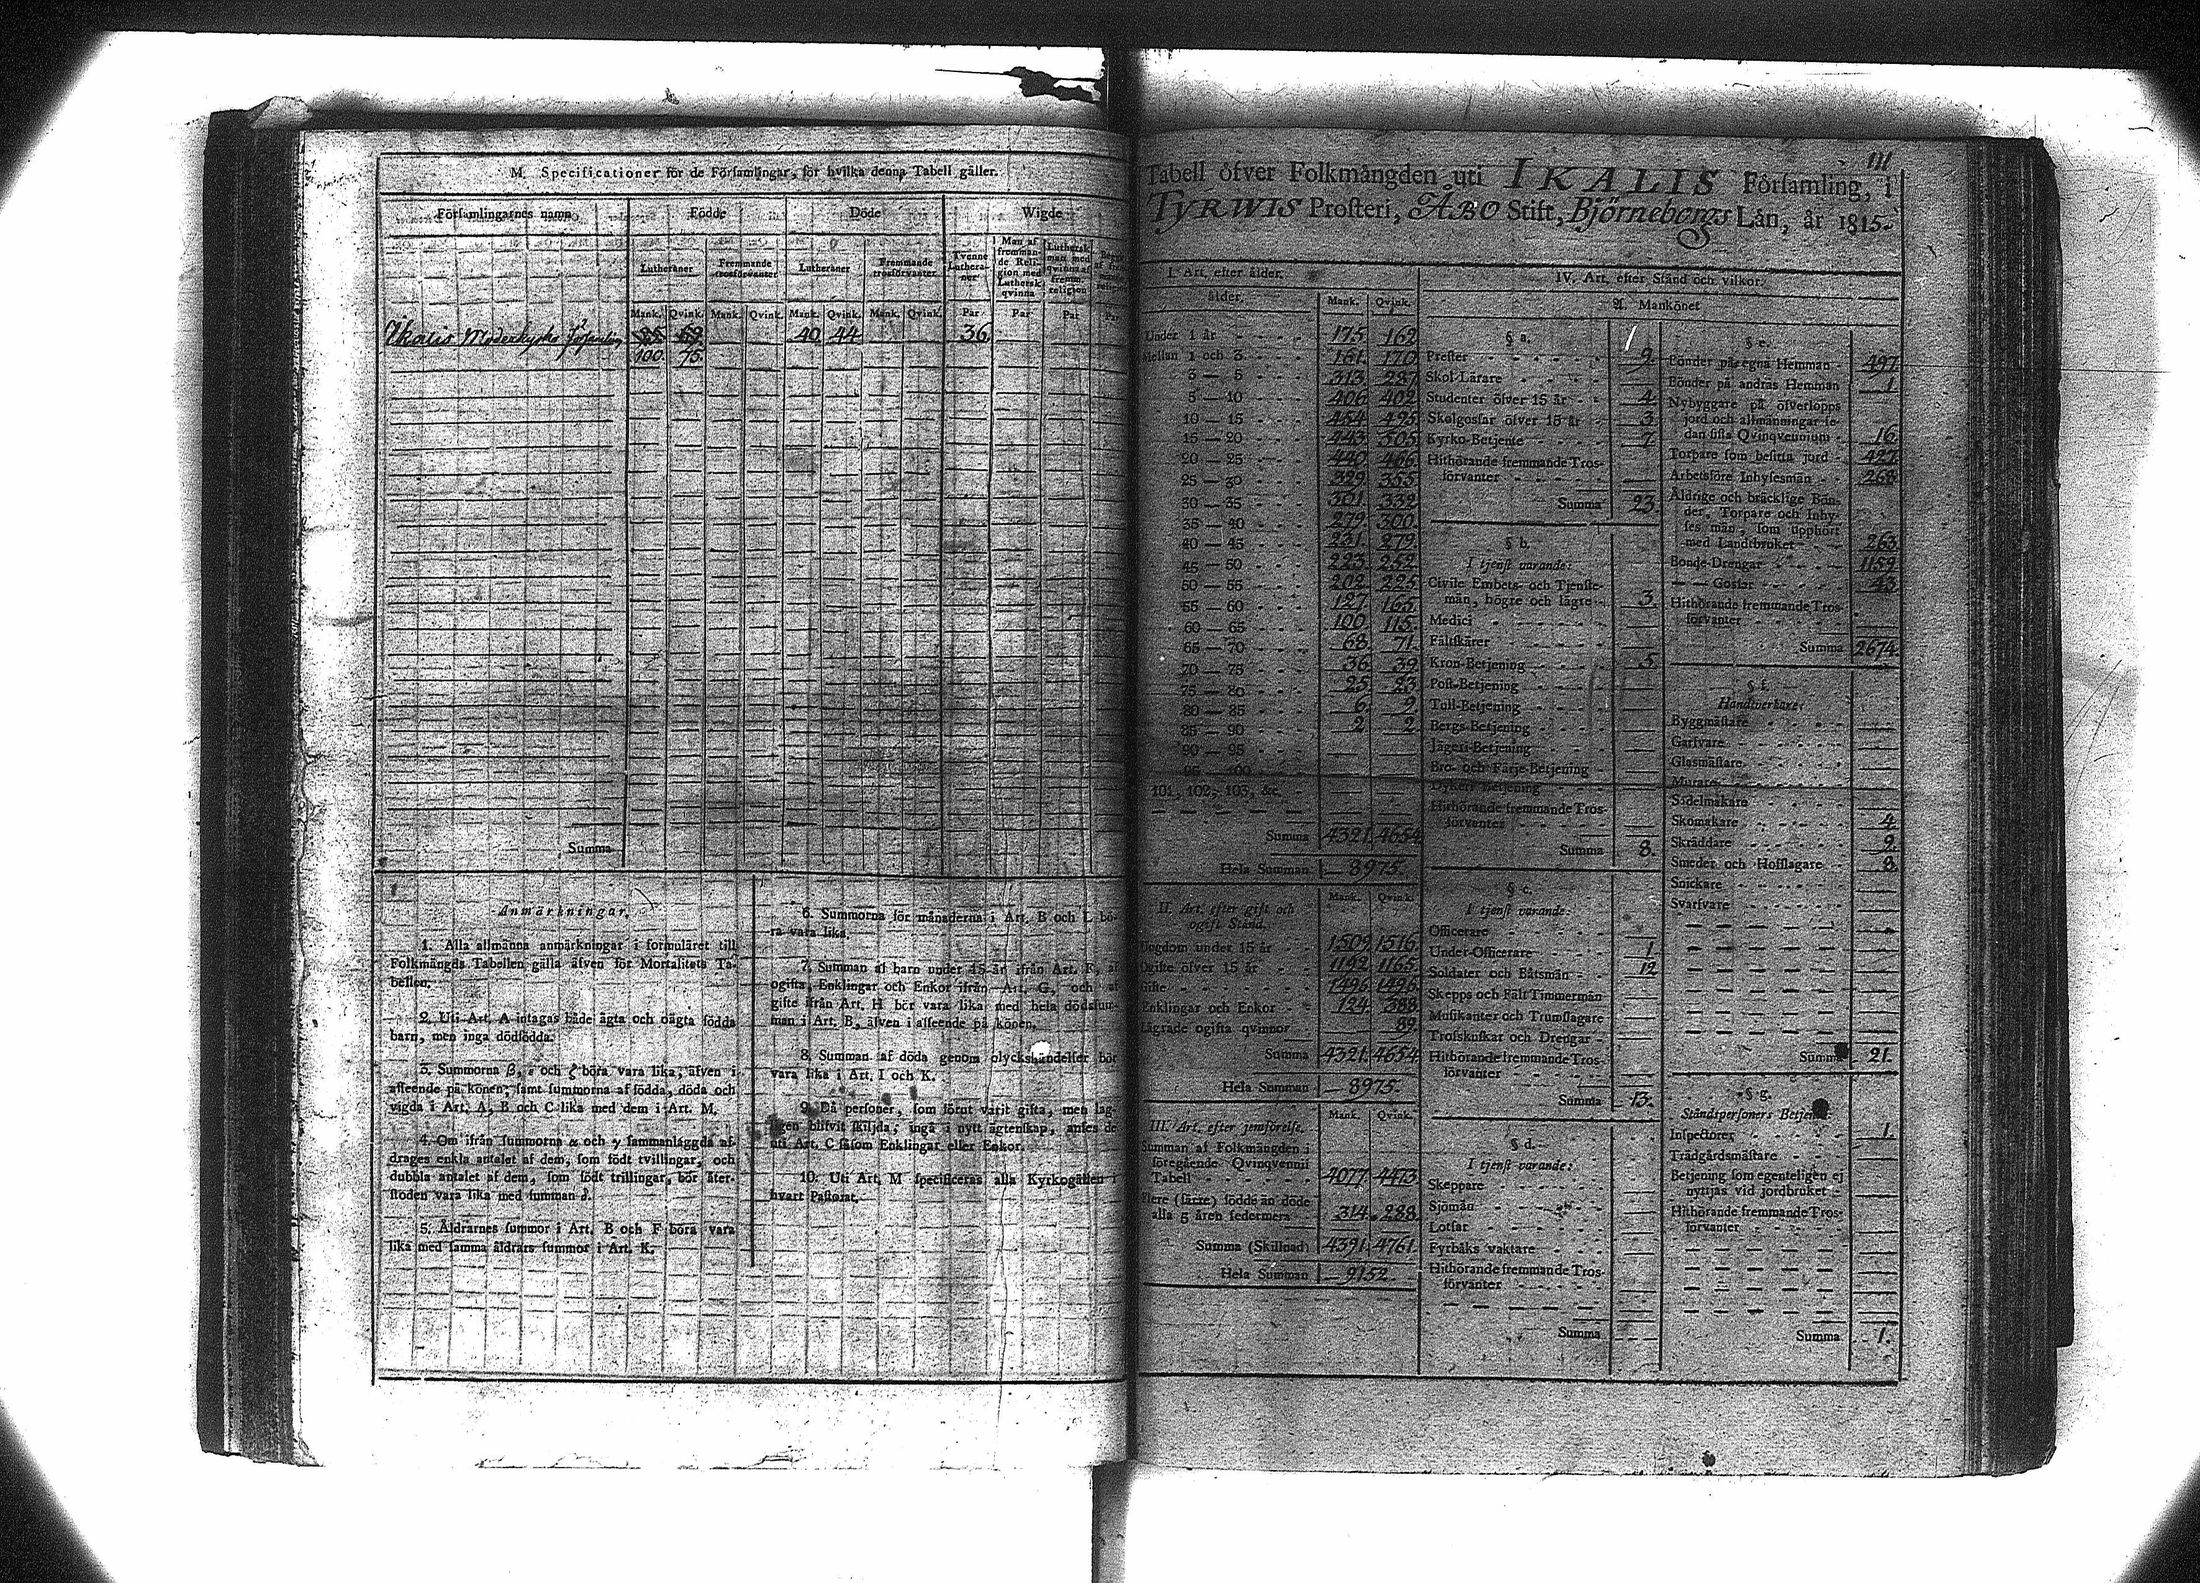 M. Specificationer för de Församlingar, för hvilka denna Tabell gäller.
Församlingarnes namn Födde Döde Wigde
Lutheraner Fremmande trosförvanter Lutheraner Fremmande trosförvanter Tvenne Lutheraner Man af fremmande Religion med Luthersk qvinna Luthersk man med qvinna af fremm. religion
Mank. Qvink. Mank. Qvink. Mank. Qvink. Mank. Qvink. Par Par Par Par
Ikalis Moderkyrko församling 40 44 36
100. 75.
Summa
Anmärkningar.
1. Alla allmänna anmärkningar i formuläret till
Folkmängds Tabellen gälla äfven för Mortalitets Ta-
bellen.
2. Uti Art. A intagas både ägta och oägta födda
barn, men inga dödfödda.
3. Summorna β, ε och ζ böra vara lika, äfven i
afseende på könen; samt summorna af födda, döda och
vigda i Art. A, B och C lika med dem i Art. M.
4. Om ifrån summorna α och γ sammanlaggda af-
drages enkla antalet af dem, som födt tvillingar, och
dubbla antalet af dem, som födt trillingar, bör åter-
stoden vara lika med summan δ.
5. Åldrarnes summor i Art. B och F böra vara
lika med samma åldrars summor i Art. K.
6. Summorna för månaderna i Art. B och L bö-
ra vara lika.
7. Summan af barn under 15 år ifrån Art. F, af
ogifta, Enklingar och Enkor ifrån Art. G, och af
gifte ifrån Art. H bör vara lika med hela dödssum-
man i Art. B, äfven i afseende på könen.
8. Summan af döda genom olyckshändelser bör
vara lika i Art. I och K.
9. Då personer, som förut varit gifta, men lag-
ligen blifvit skiljda, ingå i nytt ägtenskap, anses de
uti Art. C såsom Enklingar eller Enkor.
10. Uti Art. M specificeras alla Kyrkogällen i
hvart Pastorat.
111
Tabell öfver Folkmängden uti IKALIS Församling, i
TYRWIS Prosteri, ÅBO Stift, Björneborgs Län, år 1815.
I. Art. efter ålder.
ålder. Mank. Qvink.
Under 1 år 175 162
Mellan 1 och 3 161 170
3 — 5 313 287
5 — 10 406 402
10 — 15 454 495
15 — 20 443 505
20 — 25 440 466
25 — 30 329 355
30 — 35 301 332
35 — 40 279 300
40 — 45 231 279
45 — 50 223 252
50 — 55 202 225
55 — 60 127 165
60 — 65 100 115
65 — 70 68 71
70 — 75 36 39
75 — 80 25 23
80 — 85 6 9
85 — 90 2 2
90 — 95
95 — 100
101, 102, 103, &c.
Summa 4321 4654
Hela Summan 8975.
II. Art. efter gift och
ogift Stånd.
Mank. Qvink.
Ungdom under 15 år 1509 1516
Ogifte öfver 15 år 1192 1165
Gifte 1496 1496
Enklingar och Enkor 124 388
Lägrade ogifta qvinnor 89
Summa 4321 4654
Hela Summan 8975.
III. Art. efter jemförelse.
Mank. Qvink.
Summan af Folkmängden i
föregående Qvinqvennii
Tabell 4077 4473
Flere (färre) födde än döde
alla 5 åren sedermera 314 288
Summa (Skillnad) 4391 4761
Hela Summan 9152.
IV. Art. efter Stånd och vilkor.
A. Mankönet
§ a.
Prester 9.
Skol-Lärare
Studenter öfver 15 år 4.
Skolgossar öfver 15 år 3.
Kyrko-Betjente 7
Hithörande fremmande Tros-
förvanter
Summa 23.
§ b.
I tjenst varande:
Civile Embets- och Tjenste-
män, högre och lägre 3.
Medici
Fältskärer
Kron-Betjening 5
Post-Betjening
Tull-Betjening
Bergs-Betjening
Jägeri-Betjening
Bro- och Färje-Betjening
Dykeri Betjening
Hithörande fremmande Tros-
förvanter
Summa 8.
§ c.
I tjenst varande:
Officerare
Under-Officerare 1
Soldater och Båtsmän 12
Skepps och Fält Timmermän
Musikanter och Trumslagare
Trosskuskar och Drengar
Hithörande fremmande Tros-
förvanter
Summa 13.
§ d.
I tjenst varande:
Skeppare
Sjömän
Lotsar
Fyrbåks vaktare
Hithörande fremmande Tros-
förvanter
Summa
§ e.
Bönder på egna Hemman 497
Bönder på andras Hemman 1
Nybyggare på öfverlopps
jord och allmänningar se-
dan sista Qvinqvennium 16
Torpare som besitta jord 427
Arbetsföre Inhysesmän 268
Åldrige och bräcklige Bön-
der, Torpare och Inhy-
ses män, som upphört
med Landtbruket 263
Bonde-Drengar 1159
— — Gossar 43
Hithörande fremmande Tros-
förvanter
Summa 2674
§ f.
Handtverkare:
Byggmästare
Garfvare
Glasmästare
Murare
Sadelmakare
Skomakare 4.
Skräddare 9.
Smeder och Hofslagare 8.
Snickare
Svarfvare
Summa 21.
§ g.
Ståndspersoners Betjente:
Inspectorer 1.
Trädgårdsmästare
Betjening som egenteligen ej
nyttjas vid jordbruket
Hithörande fremmande Tros-
förvanter
Summa 1.